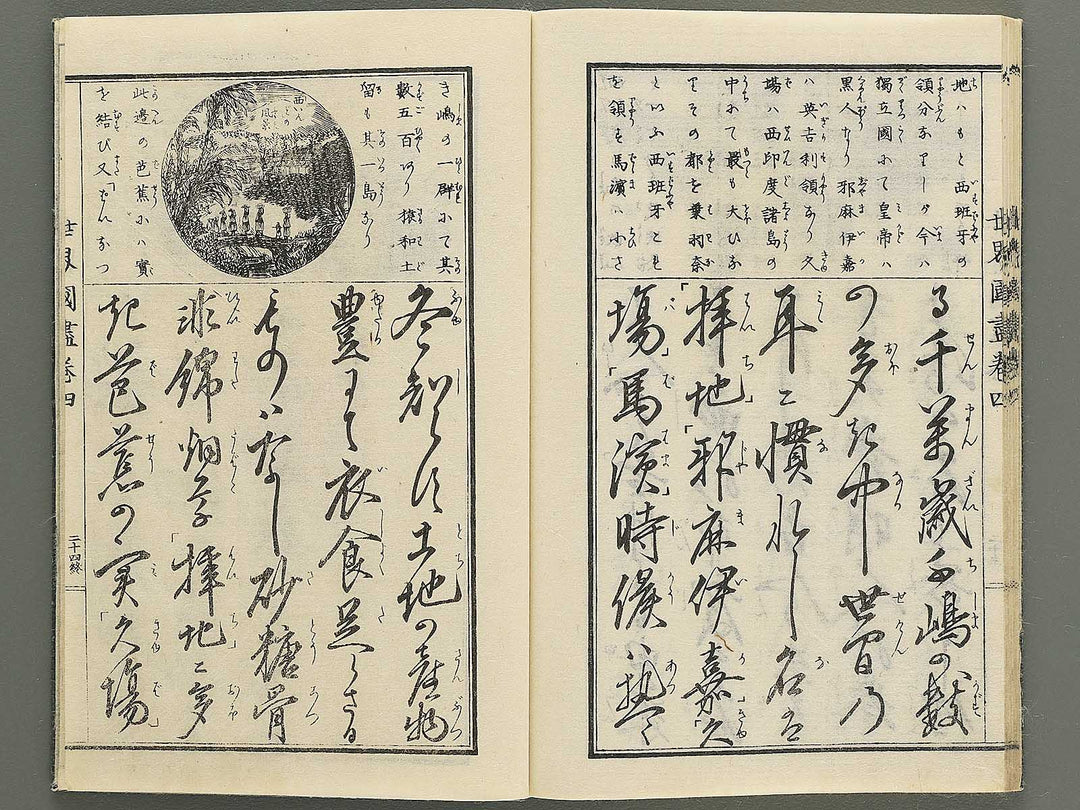 地ハもと西班牙の
領分なりしが今ハ
獨立國にて皇帝ハ
黒人なり 邪麻伊嘉
ハ英吉利領なり久
場ハ西印度諸島の
中にて最も大ひな
りその都を乗羽奈
といふ西班牙とも
を領す馬濱ハ小さ
る千萬歳千嶋の数
の多き中世間乃
耳に慣れし名は
拝地」「邪麻伊嘉」「久
場」「馬濱」時候ハ熱く
世界國盡卷四
き嶋の一群にて其
數五百あり 猿和土
留も其一島なり
西いんどの風
此邊の芭蕉にハ實
を結び又「ばんなつ
冬知らず土地の産物
豊にて衣食足らざる
ものハなし砂糖骨
非綿烟草「拝地」に多
き芭蕉の実「久場」
世界國盡卷四
二十四終